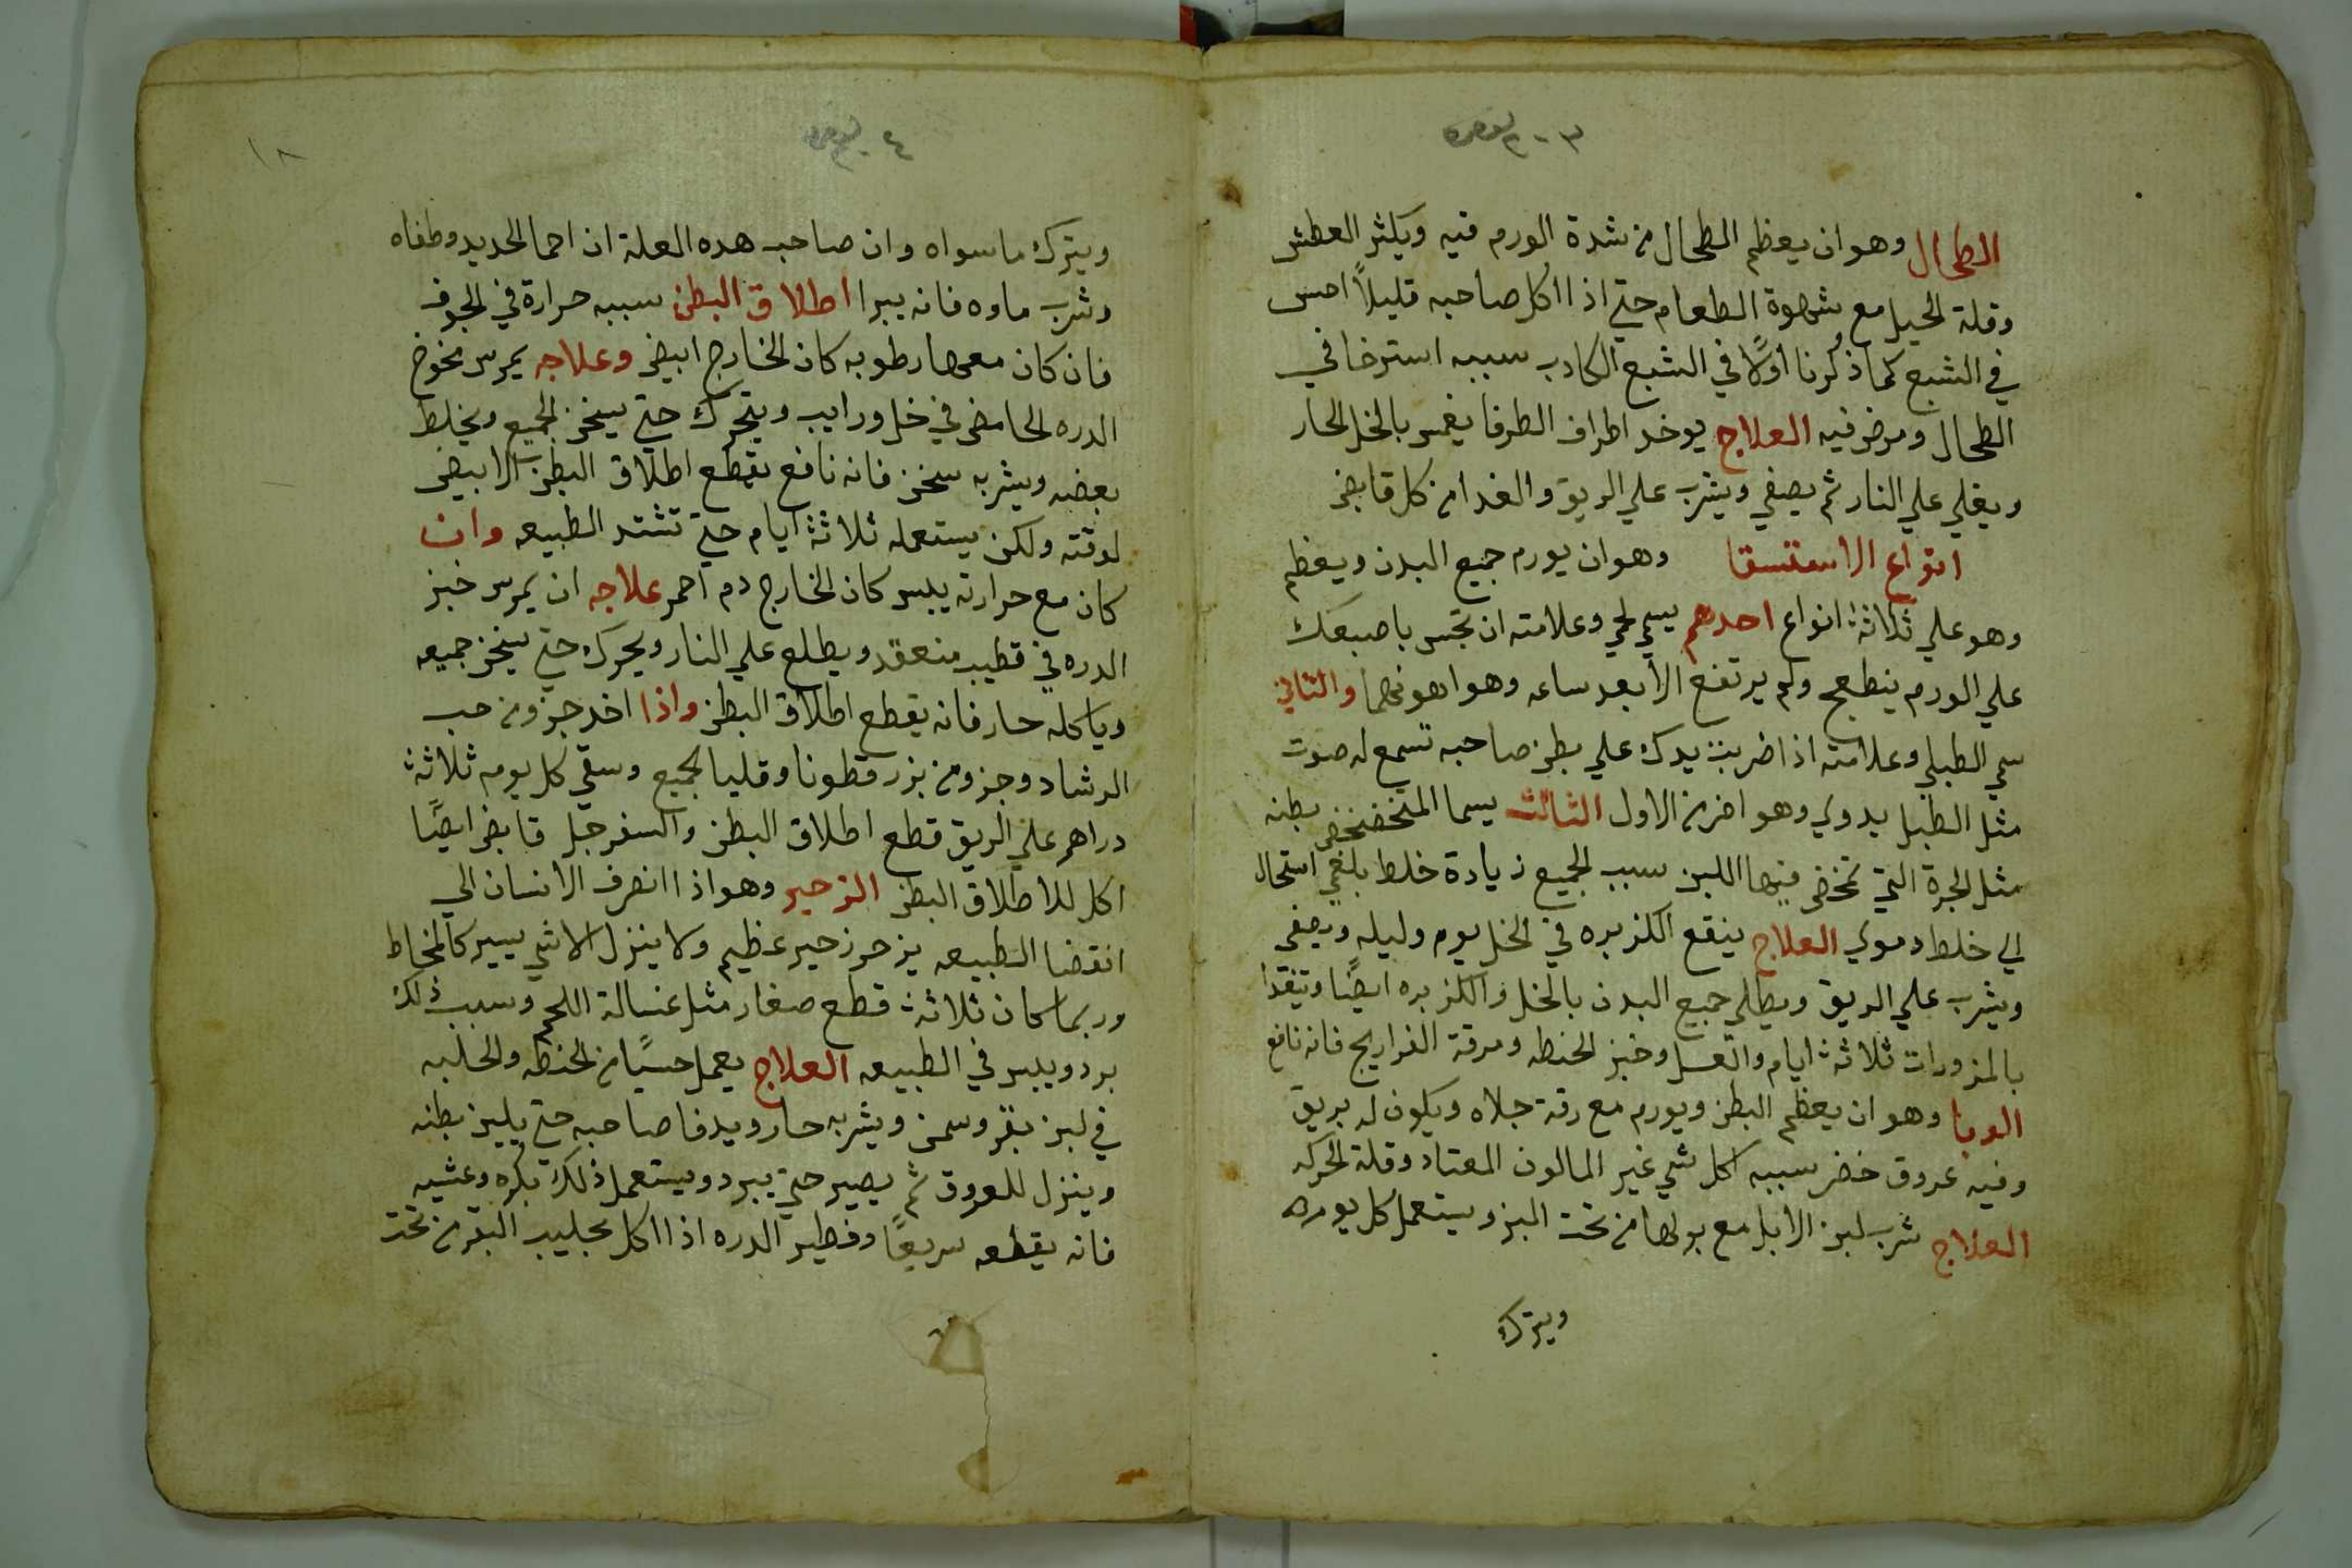 الطحال وهو ان يعظم الطحال من شدة الورم فيه ويكثر العطش
وقلة الحيل مع شهوة الطعام حتي اذا اكل صاحبه قليلاً احس
في الشبع كما ذكرنا اولاً في الشبع الكادب سببه استرخا في
الطحال ومرض فيه العلاج يوخد اطراف الطرفا يغمر بالخل الحار
ويغلي علي النار ثم يصفي ويشرب علي الريق والغدا من كل قابض
انواع الاستسقا وهو ان يورم جميع البدن ويعظم
وهو علي ثلاثة انواع احدهم يسمي لحمي وعلامته ان تجس باصبعك
علي الورم ينطعج ولم يرتفع الا بعد ساعه وهو اهونهما والثاني
سمي الطبلي وعلامته اذا ضربت يدك علي بطن صاحبه تسمع له صوت
مثل الطبل يدوي وهو اضر من الاول الثالث يسما المتخضخض بطنه
مثل الجرة التي تمخض فيها اللبن سبب الجميع زيادة خلط بلغمي استحال
الي خلط دموي العلاج ينقع الكزبره في الخل يوم وليله ويصفي
ويشرب علي الريق ويطلي جميع البدن بالخل والكزبره ايضًا ويتغدا
بالمزورات ثلاثة ايام والعسل وخبز الحنطه ومرقة الفراريج فانه نافع
الوبا وهو ان يعظم البطن ويورم مع رقة جلاه ويكون له بريق
وفيه عروق خضر سببه اكل شي غير المالوف المعتاد وقلة الحركه
العلاج شرب لبن الابل مع بولها من تحت البز ويستعمل كل يوم
ويترك
١٨
ويترك ما سواه وان صاحب هده العلة ان احما الحديد وطفاه
وشرب ماوه فانه يبرا اطلاق البطن سببه حرارة في الجوف
فان كان معها رطوبه كان الخارج ابيض وعلاجه يمرس مخوخ
الدره الحامض في خل ورايب ويتحرك حتي يسخن الجميع ويخلط
بعضه ويشربه سخن فانه نافع يقطع اطلاق البطن الابيض
لوقته ولكن يستعمله ثلاثة ايام حتي تشتد الطبيعه وان
كان مع حرارته يبس كان الخارج دم احمر علاجه ان يمرس خبز
الدره في قطيب منعقد ويطلع علي النار ويحرك حتي يسخن جميعه
وياكله حار فانه يقطع اطلاق البطن واذا اخد جزو من حب
الرشاد وجزو من بزر قطونا وقليا الجميع وسقي كل يوم ثلاثة
دراهم علي الريق قطع اطلاق البطن والسفرجل قابض ايضًا
اكل للاطلاق البطن الزحير وهو اذا انصرف الانسان الي
انقضا الطبيعه يزحر زحير عظيم ولا ينزل الا شي يسير كالمخاط
وربما كان ثلاثة قطع صغار مثل غسالة اللحم وسبب ذلك
برد ويبس في الطبيعه العلاج يعمل حسيًا من الحنطه والحلبه
في لبن بقر وسمن ويشربه حار ويدفا صاحبه حتي يلين بطنه
وينزل للعروق ثم يصير حتي يبرد ويستعمل ذلك بكره وعشيه
فانه يقطعه سريعًا وفطير الدره اذا اكل بحليب البقر من تحت